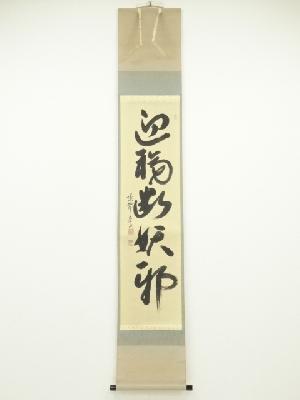 迎福断妖邪